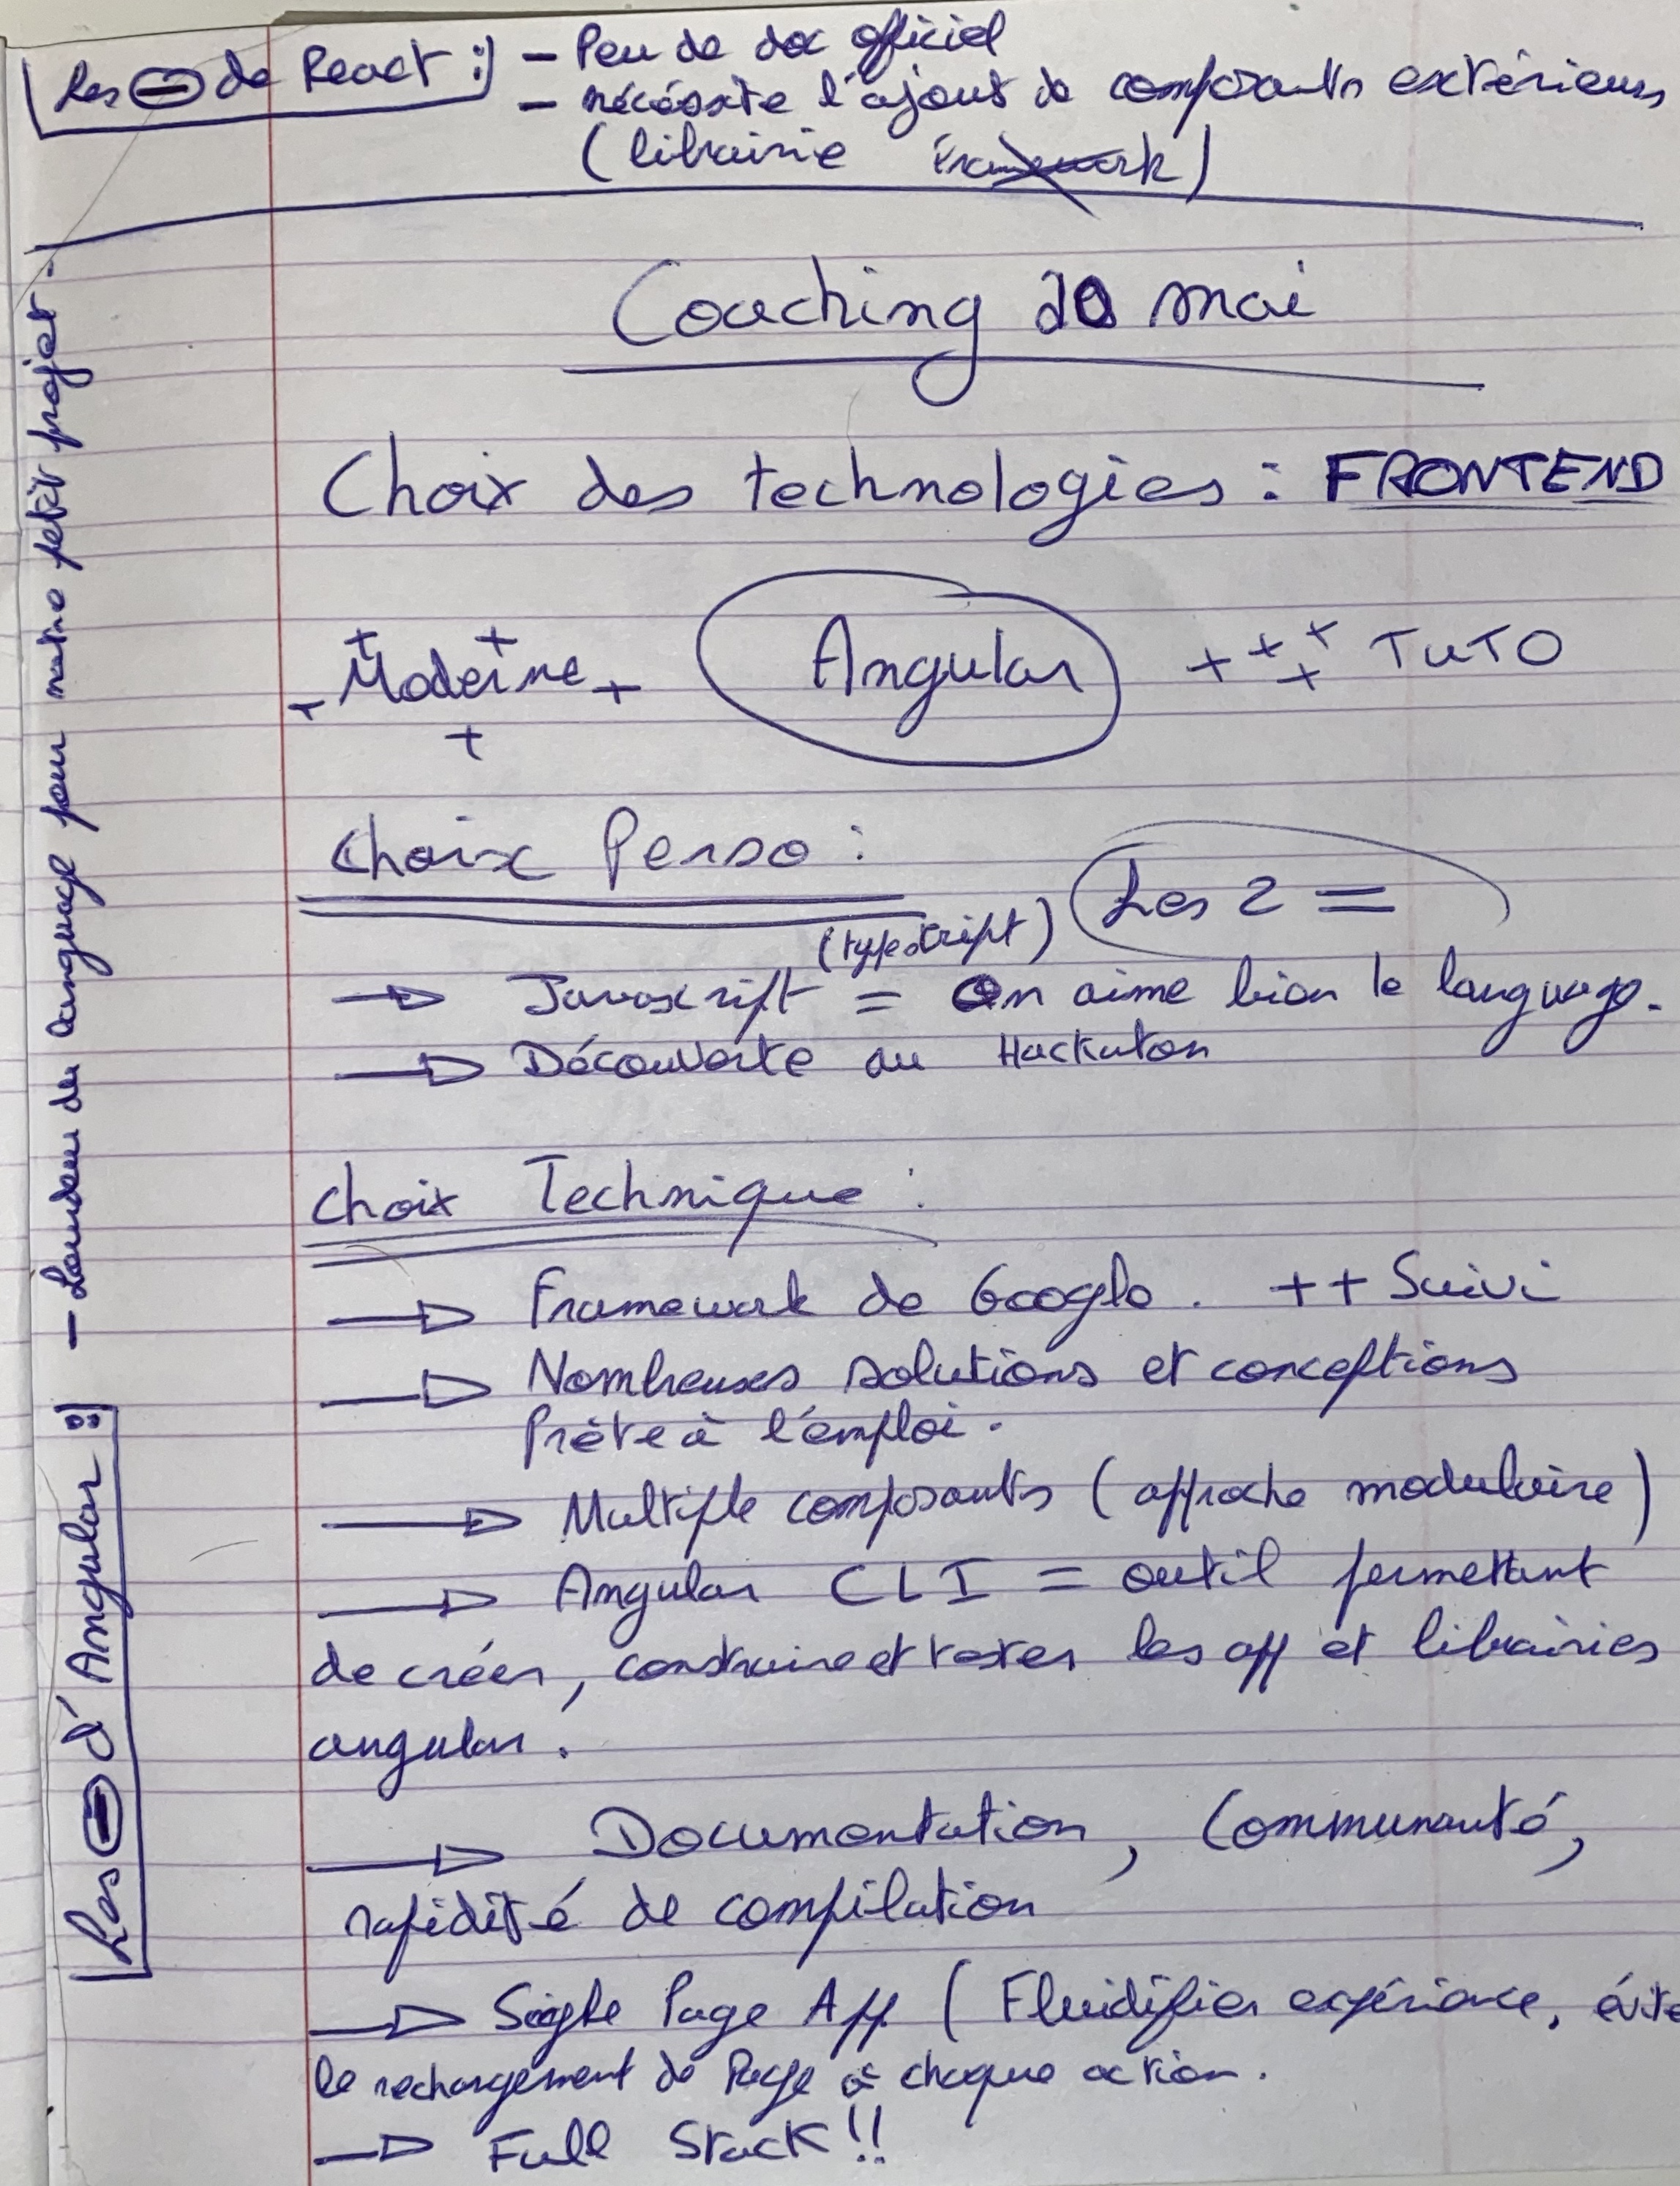 Les ⊖ de React :
- Peu de doc officiel
- nécéssite l'ajout de composants extérieurs
(librairie framework)
Coaching 20 mai
Choix des technologies : FRONTEND
+ Moderne + + + +
Angular
++++ TUTO
Choix Perso :
Les 2 =
(typescript)
→ Javascript = On aime bien le language.
→ Découverte au Hackaton
Choix Technique :
→ Framework de Google. ++ Suivi
→ Nombreuses solutions et conceptions
Prête à l'emploi.
→ Multiple composants (approche modulaire)
→ Angular CLI = outil permettant
de créer, construire et tester les app et librairies
angular.
→ Documentation, Communauté,
rapidité de compilation
→ Single Page App (Fluidifier expérience, évite
le rechargement de Page à chaque action.
→ Full Stack !!
Les ⊖ d'Angular :
- Lourdeur du language pour notre petit projet -